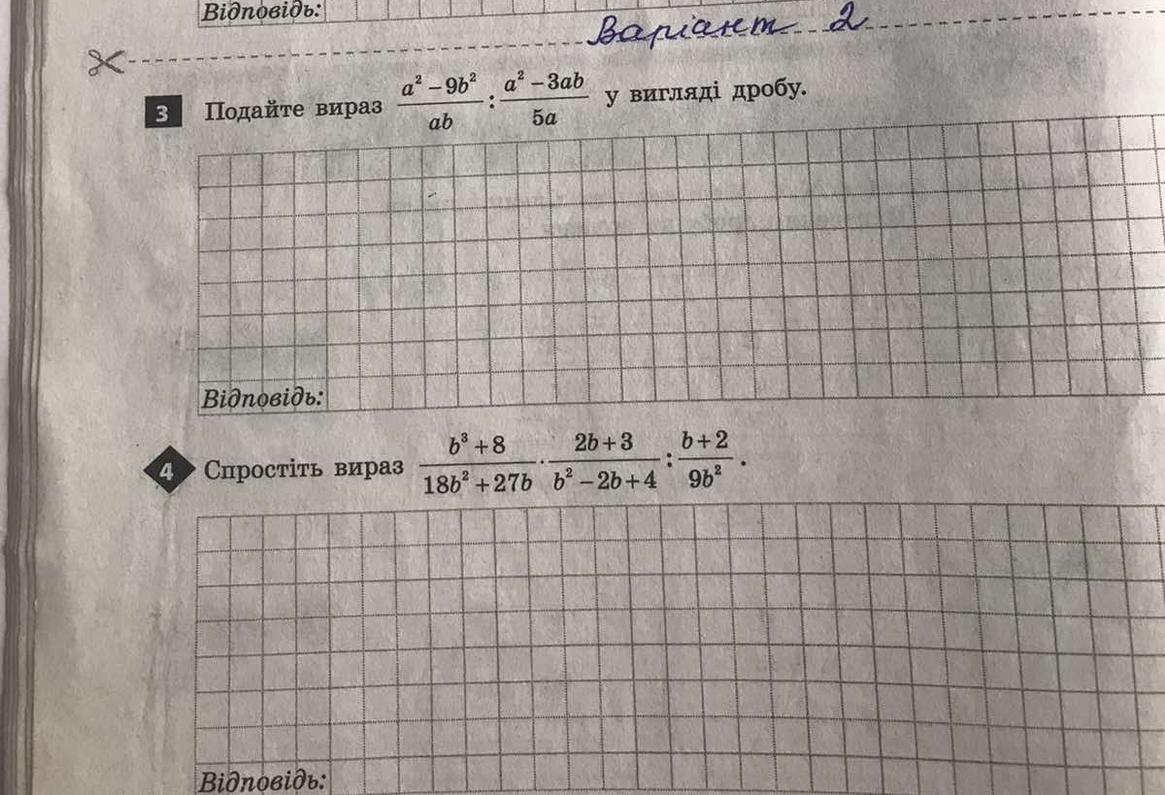 Відповідь:
Варіант 2
3 Подайте вираз (a² – 9b²)/(ab) : (a² – 3ab)/(5a) у вигляді дробу.
Відповідь:
4 Спростіть вираз (b³ + 8)/(18b² + 27b) · (2b + 3)/(b² – 2b + 4) : (b + 2)/(9b²) .
Відповідь: